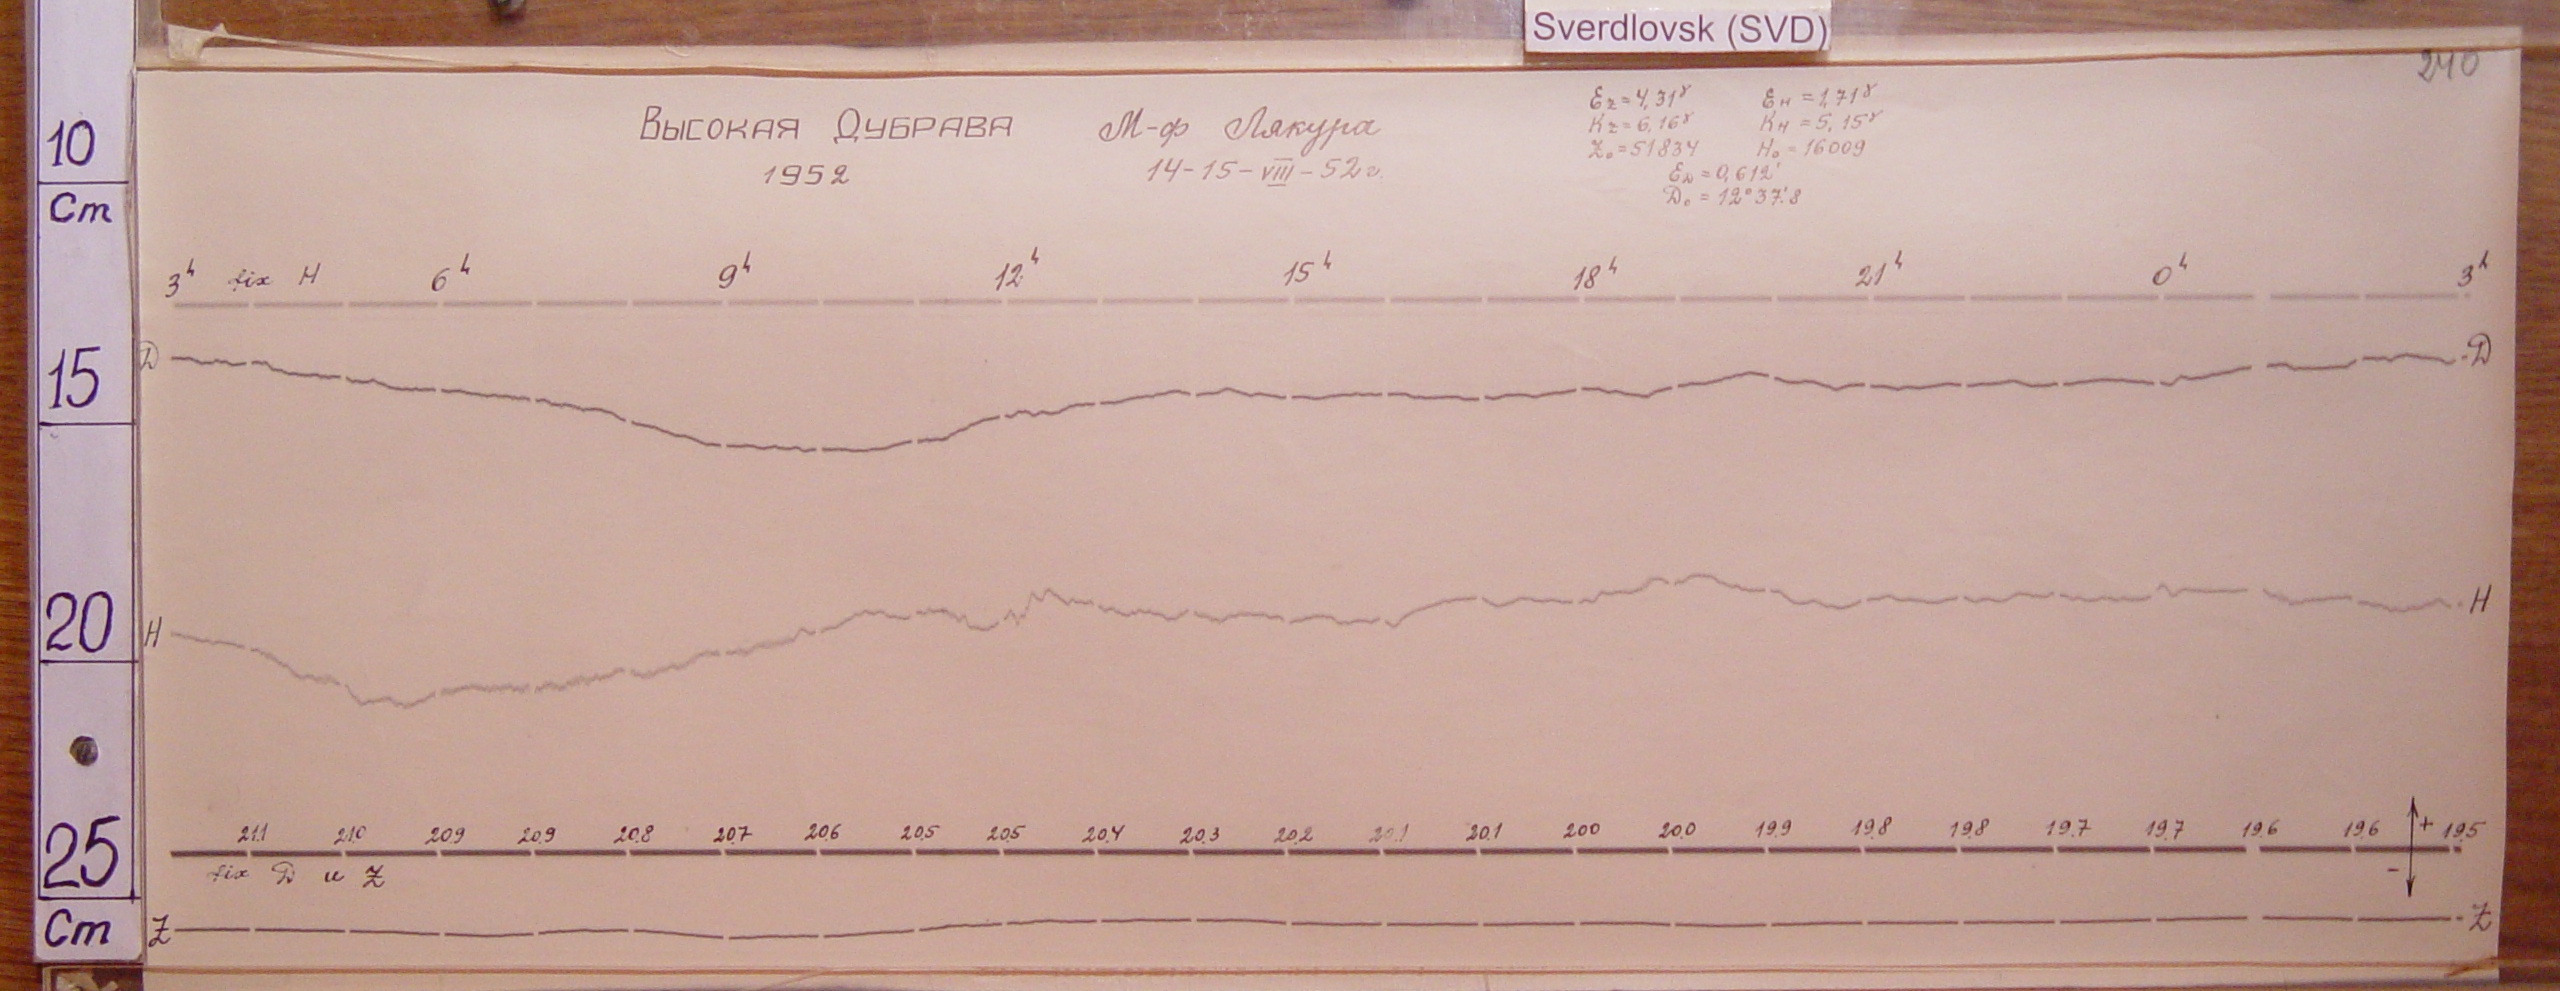 Sverdlovsk (SVD)
240
Высокая Дубрава
1952
М-ф Лякура
14-15-VIII-52г.
Ez=4,31γ EH=1,71γ
Kz=6,16γ KH=5,15γ
Z₀=51834 H₀=16009
ED=0,612'
D₀=12°37'.8
10
Cm
15
20
25
Cm
3h fix H 6h 9h 12h 15h 18h 21h 0h 3h
D D
H H
21.1 21.0 20.9 20.9 20.8 20.7 20.6 20.5 20.5 20.4 20.3 20.2 20.1 20.1 20.0 20.0 19.9 19.8 19.8 19.7 19.7 19.6 19.6 + 19.5
fix D и Z -
Z Z